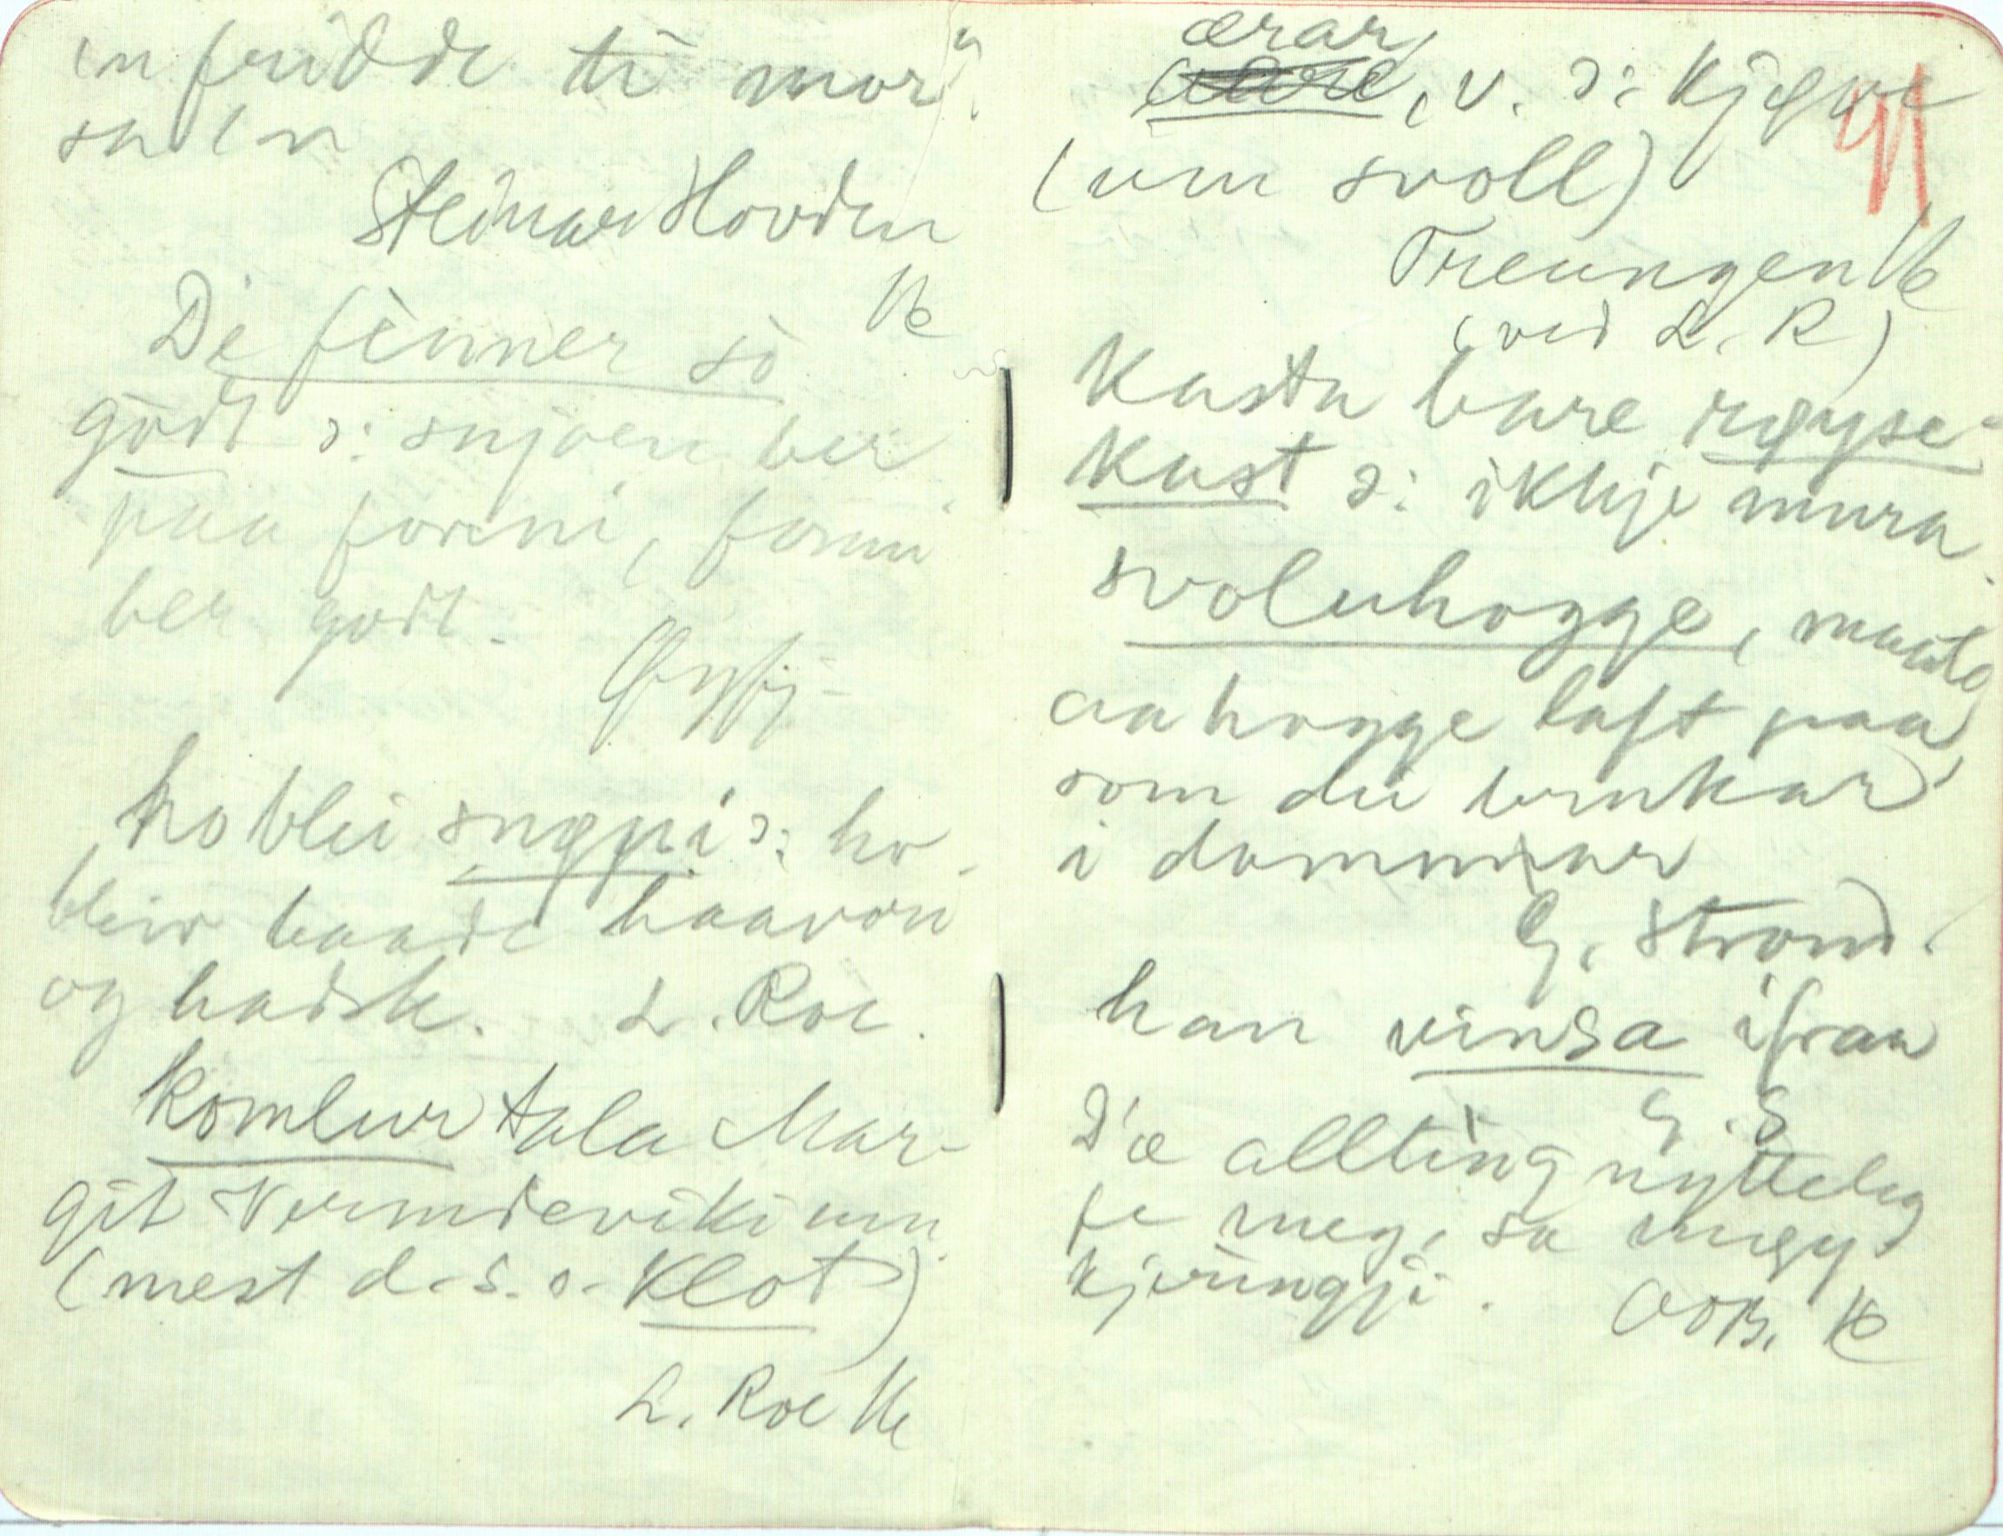 en fridde ti mor"
sa en
Steinar Hovden
De finner so
godt ɔ: snjoen ber
paa forini, forini
ber godt.
ho blei snøpi ɔ: ho
bleiv baade haavon
og hadsk. L. Roe.
Komlur tala Mar-
git Vermdeviki um
(mest d. s. o. Klot)
L. Roe
ærar, v. ɔ: kjøve
91
(um svoll)
Treungen
(ved L. R)
Kasta bare røyse-
kast ɔ: ikkje mura.
svoluhogge, maate
aa hogge laft paa,
som du brukar
i dammar
G. Strond.
han vinsa ifraa
G. S
D'æ allting nytteleg
fe meg, sa møy-
kjeringji. OOB.